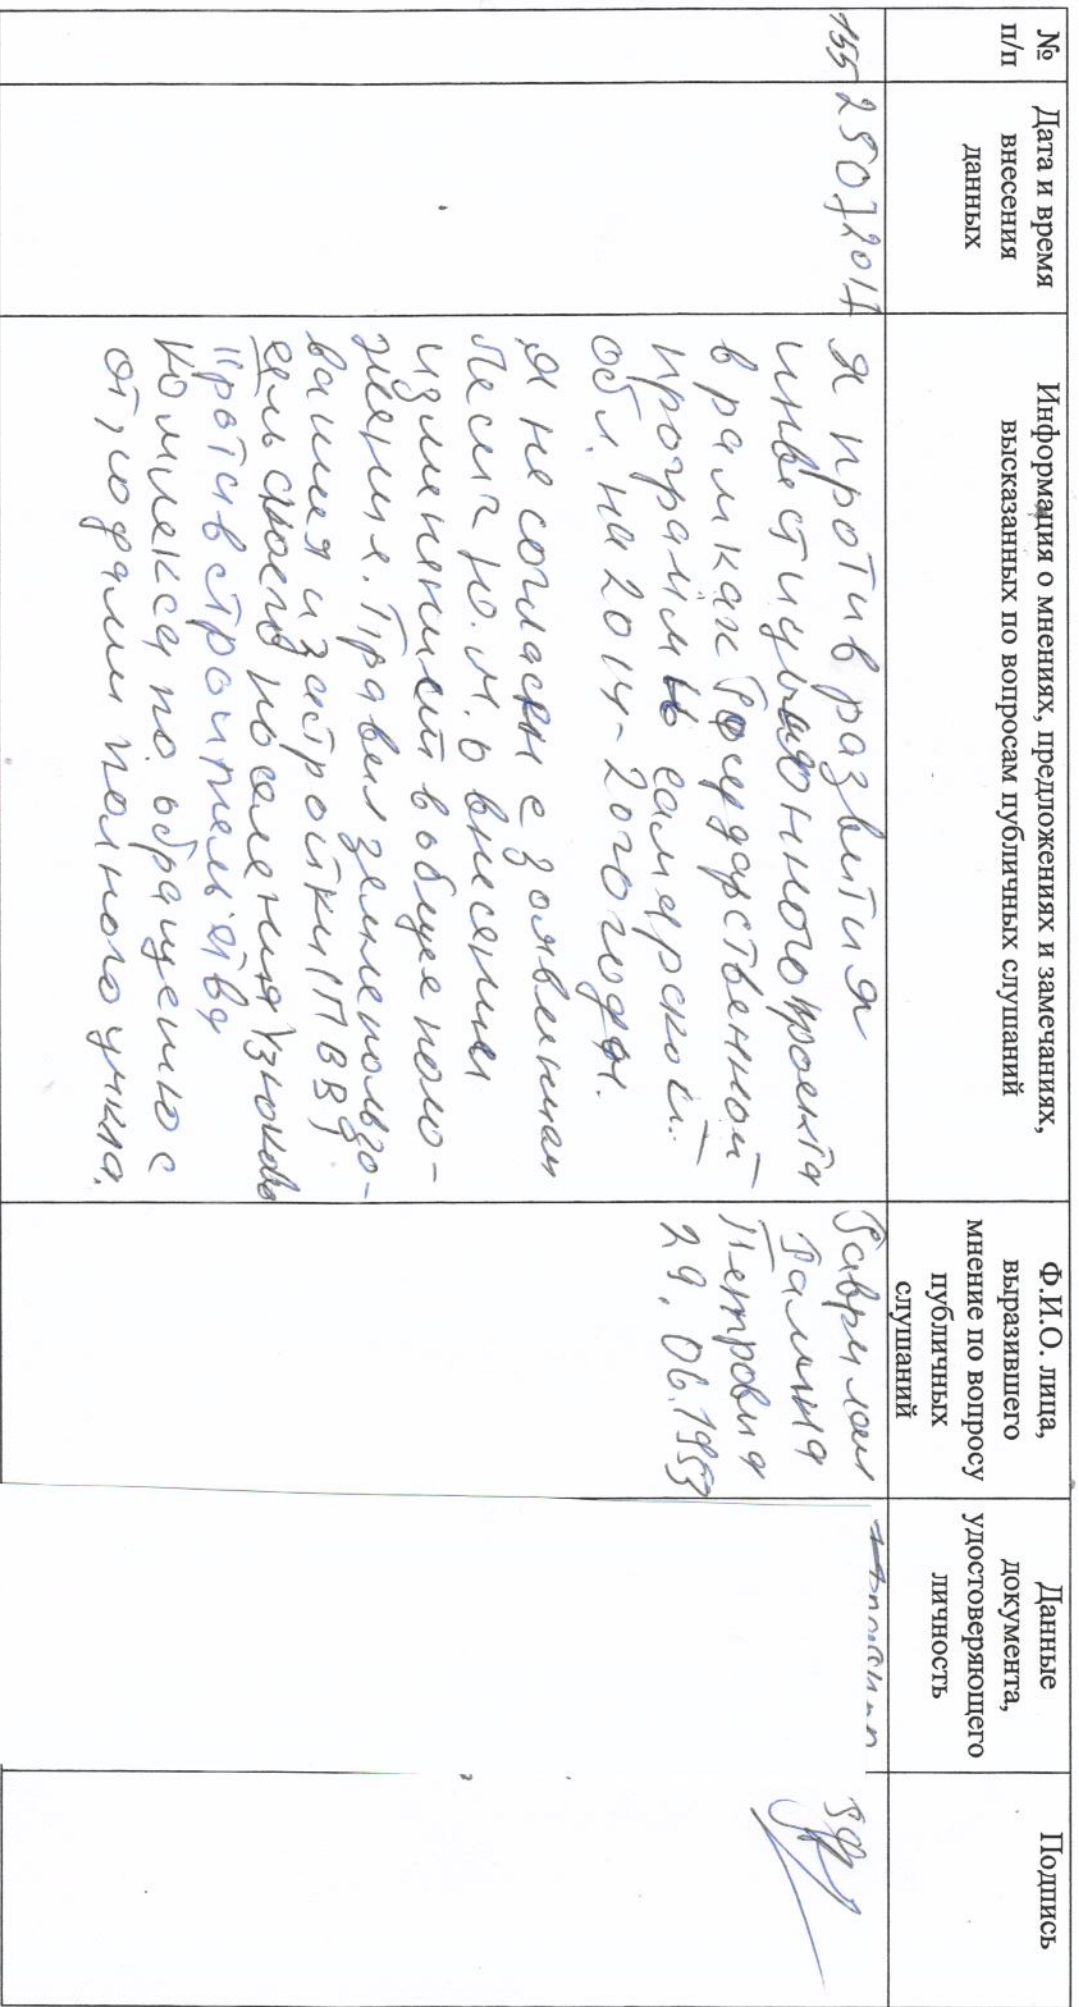 №
п/п
Дата и время
внесения
данных
Информация о мнениях, предложениях и замечаниях,
высказанных по вопросам публичных слушаний
Ф.И.О. лица,
выразившего
мнение по вопросу
публичных
слушаний
Данные
документа,
удостоверяющего
личность
Подпись
155
25072017
Я против развития
инвестиционного проекта
в рамках Государственной
программы самарской
обл. на 2014-2020 годы.
Я не согласен с
о внесении
изменений в общее поло-
жение. Правил землепользо-
вания и застройки (ПВВ)
сельского поселения Узюково
Против строительства
комплекса по обращению с
отходами полного цикла.
Гаврилова
Галина
Петровна
29.06.1953